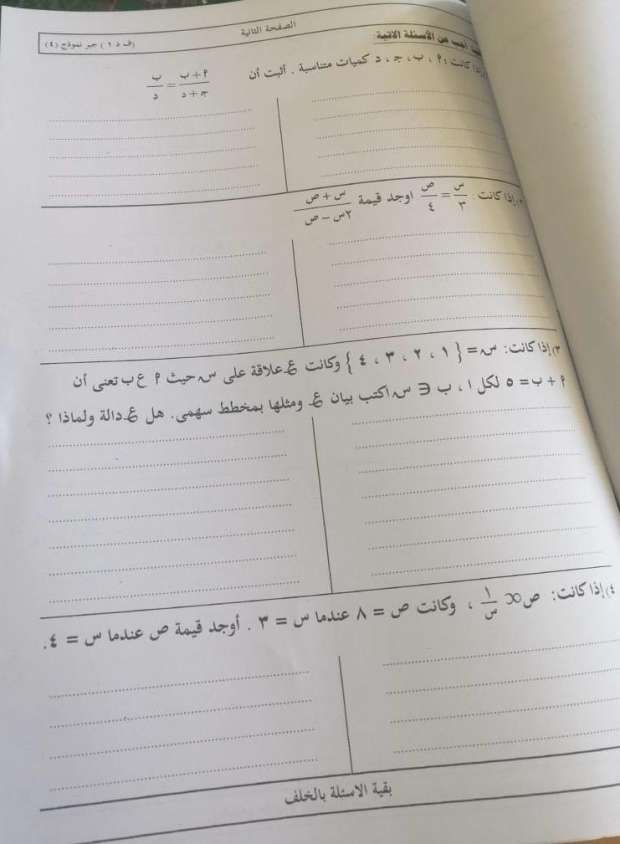 الصفحة الثانية
(ف د ١) جبر نموذج (٤)
أجب عن الأسئلة الآتية:
إذا كانت: ٢، ب، جـ، د كميات متناسبة. أثبت أن (٢+ب)/(جـ+د) = ب/د
إذا كانت س/٣ = ص/٤ اوجد قيمة (س + ص)/(٢س - ص)
٣) إذا كانت: س = {١، ٢، ٣، ٤} وكانت ع علاقة على س حيث ٢ ع ب تعنى أن
٢ + ب = ٥ لكل ا، ب ∋ س اكتب بيان ع ومثلها بمخطط سهمى. هل ع دالة ولماذا ؟
٤) إذا كانت: ص ∝ ١/س ، وكانت ص = ٨ عندما س = ٣. أوجد قيمة ص عندما س = ٤.
بقية الاسئلة بالخلف